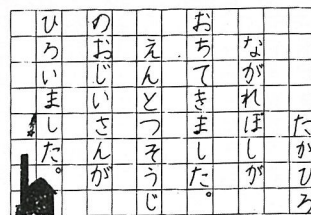 たかひろ
ながれぼしが
おちてきました。
えんとつそうじ
のおじいさんが
ひろいました。